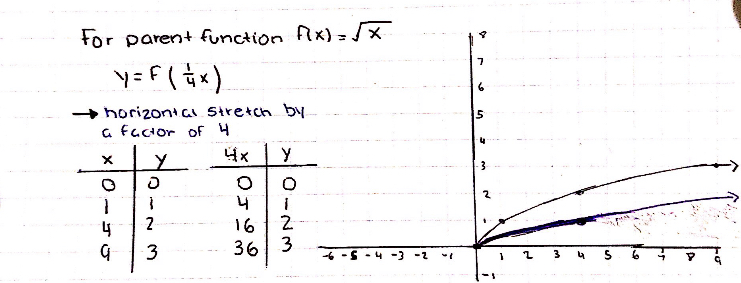 For parent function f(x) = √x
y = F ( 1/4 x )
→ horizontal stretch by
a factor of 4
x | y    4x | y
0 | 0    0 | 0
1 | 1    4 | 1
4 | 2    16 | 2
9 | 3    36 | 3
8
7
6
5
4
3
2
1
-6 -5 -4 -3 -2 -1 1 2 3 4 5 6 7 8 9
-1